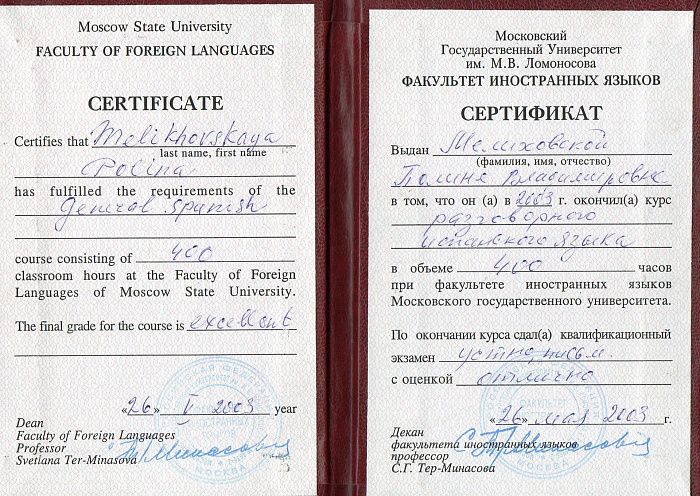 Moscow State University
FACULTY OF FOREIGN LANGUAGES
CERTIFICATE
Certifies that Melikhovskaya
last name, first name
Polina
has fulfilled the requirements of the
General Spanish
course consisting of 400
classroom hours at the Faculty of Foreign
Languages of Moscow State University.
The final grade for the course is excellent
«26» V 2003 year
Dean
Faculty of Foreign Languages
Professor
Svetlana Ter-Minasova
МОСКВА
Московский
Государственный Университет
им. М.В. Ломоносова
ФАКУЛЬТЕТ ИНОСТРАННЫХ ЯЗЫКОВ
СЕРТИФИКАТ
Выдан Мелиховской
(фамилия, имя, отчество)
Полине Владимировне
в том, что он (а) в 2003 г. окончил(а) курс
разговорного
испанского языка
в объеме 400 часов
при факультете иностранных языков
Московского государственного университета.
По окончании курса сдал(а) квалификационный
экзамен устно, письм.
с оценкой отлично
«26» мая 2003 г.
Декан
факультета иностранных языков
профессор
С.Г. Тер-Минасова
МОСКВА